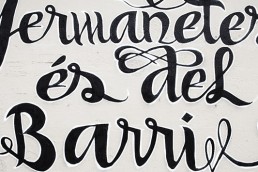 Germanetes
és del
Barri